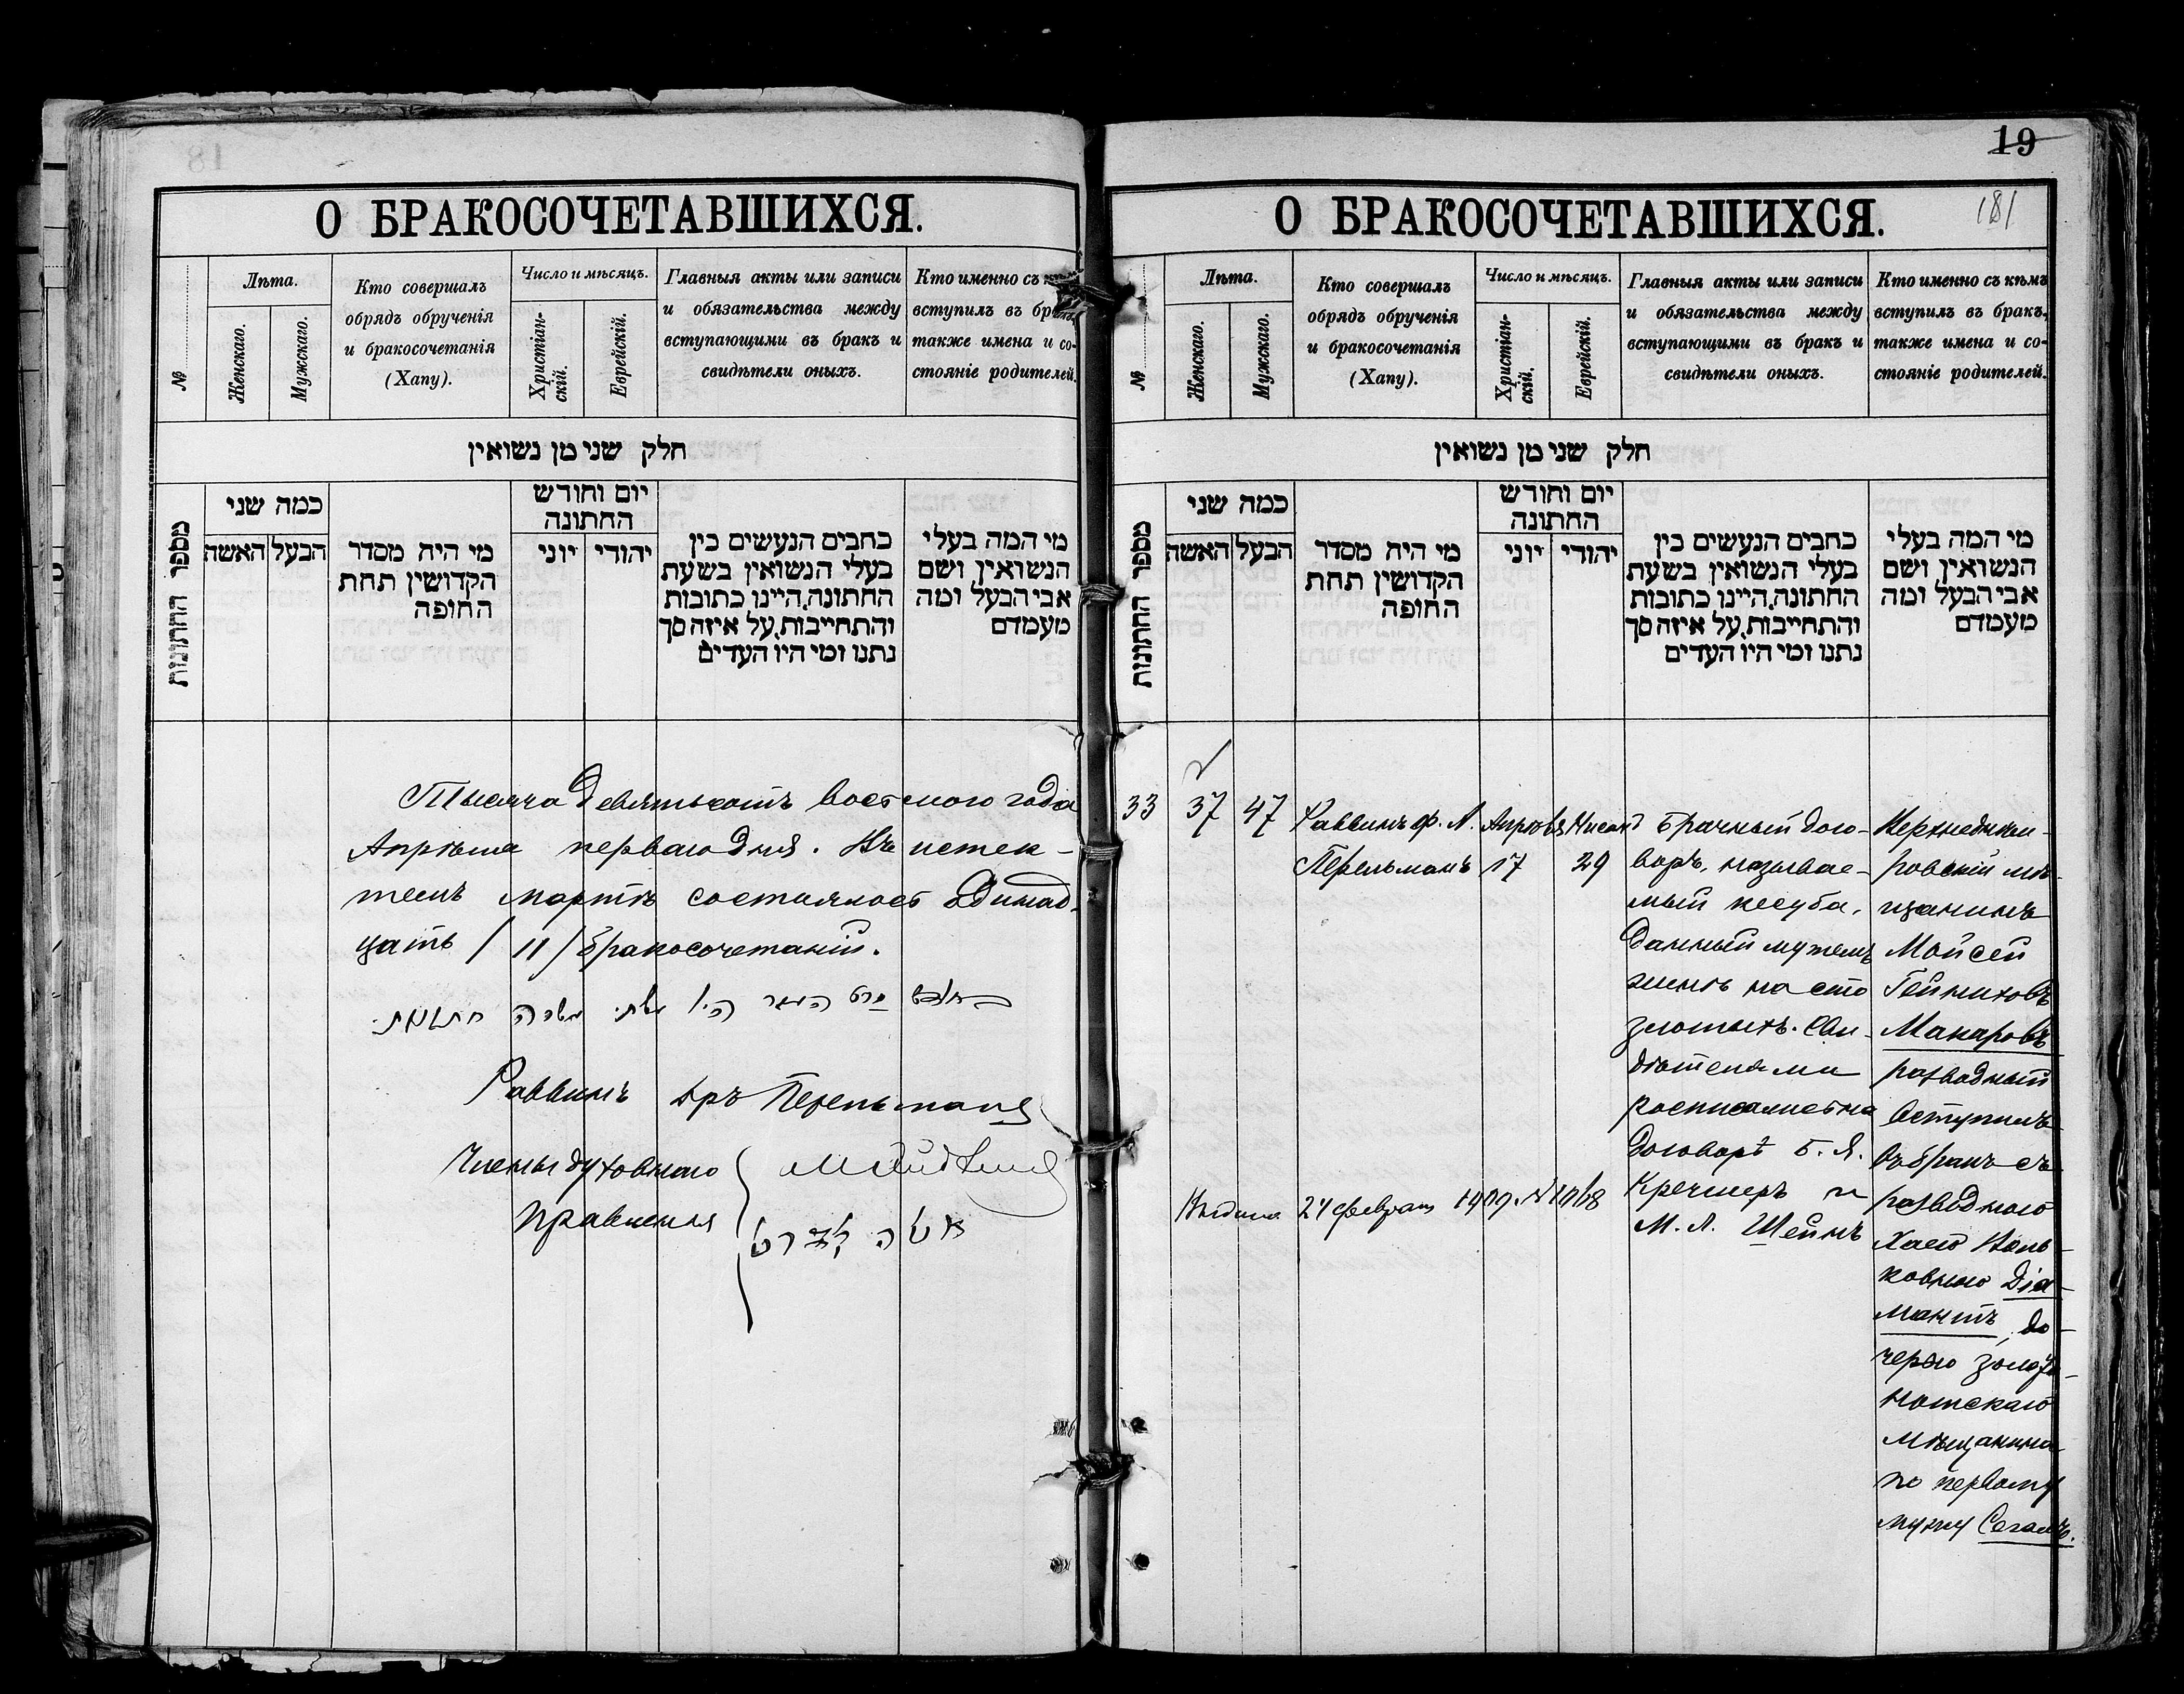 О БРАКОСОЧЕТАВШИХСЯ.
№
Лѣта.
Женскаго.
Мужскаго.
Кто совершалъ
обрядъ обрученія
и бракосочетанія
(Хапу).
Число и мѣсяцъ.
Христіан-
скій.
Еврейскій.
Главныя акты или записи
и обязательства между
вступающими въ бракъ и
свидѣтели оныхъ.
Кто именно съ
вступилъ въ бракъ,
также имена и со-
стояніе родителей.
חלק שני מן נשואין
מספר החתונות
כמה שני
הבעל
האשה
מי היה מסדר
הקדושין תחת
החופה
יום וחודש
החתונה
יהודי
יוני
כתבים הנעשים בין
בעלי הנשואין בשעת
החתונה, היינו כתובות
והתחייבות, על איזה סך
נתנו ומי היו העדים
מי המה בעלי
הנשואין ושם
אבי הבעל ומה
מעמדם
Тысяча девятьсотъ восьмого года
Апрѣля перваго дня. Въ истек-
шемъ мартѣ состоялось одинад-
цать /11/ бракосочетаній.
Раввинъ дръ Перельманъ
Члены духовнаго
Правленія
19
181
О БРАКОСОЧЕТАВШИХСЯ.
№
Лѣта.
Женскаго.
Мужскаго.
Кто совершалъ
обрядъ обрученія
и бракосочетанія
(Хапу).
Число и мѣсяцъ.
Христіан-
скій.
Еврейскій.
Главныя акты или записи
и обязательства между
вступающими въ бракъ и
свидѣтели оныхъ.
Кто именно съ кѣмъ
вступилъ въ бракъ,
также имена и со-
стояніе родителей.
חלק שני מן נשואין
מספר החתונות
כמה שני
הבעל
האשה
מי היה מסדר
הקדושין תחת
החופה
יום וחודש
החתונה
יהודי
יוני
כתבים הנעשים בין
בעלי הנשואין בשעת
החתונה, היינו כתובות
והתחייבות, על איזה סך
נתנו ומי היו העדים
מי המה בעלי
הנשואין ושם
אבי הבעל ומה
מעמדם
33
37
47
Раввинъ Ф. Л.
Перельманъ
Апрѣль
17
Нисанъ
29
Брачный дого-
воръ, называе-
мый кесуба,
данный мужемъ
женѣ на сто
злотыхъ. Сви-
дѣтелями
росписались на
договорѣ Б. Я.
Кречмеръ и
М. Л. Шейнъ
Верхнеднѣп-
ровскій мѣ-
щанинъ
Мойсей
Гейниховъ
Макаровъ
разводный
вступилъ
въ бракъ съ
разводною
Хаею Воль-
ковною Діа-
мантъ, до-
черью золото-
ношскаго
мѣщанина
по первому
мужу Сегаль.
Выдана 24 февраля 1909. № 1068